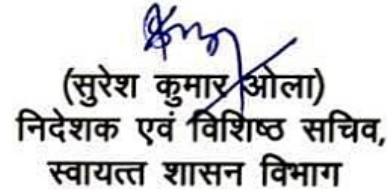 (सुरेश कुमार ओला)
निदेशक एवं विशिष्ठ सचिव,
स्वायत्त शासन विभाग